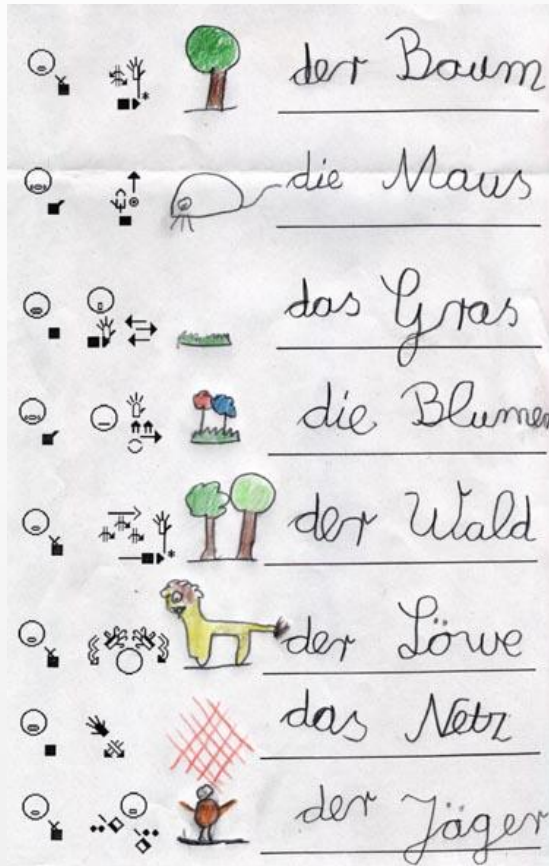 der Baum
die Maus
das Gras
die Blumen
der Wald
der Löwe
das Netz
der Jäger